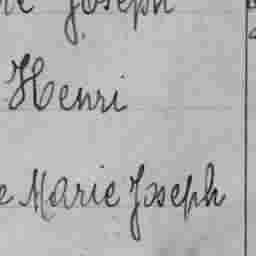 Joseph
Henri
e Marie Joseph